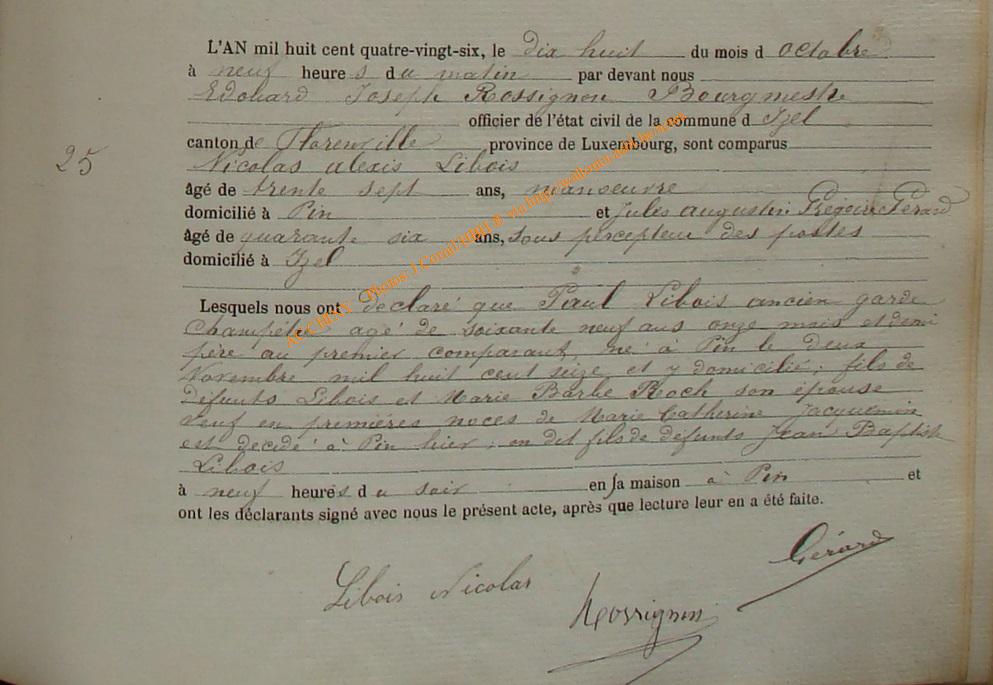 L'AN mil huit cent quatre-vingt-six, le dix huit du mois d octobre
à neuf heure s du matin par devant nous
Edouard Joseph Rossignon Bourgmestre
officier de l'état civil de la commune d Izel
canton de Florenville province de Luxembourg, sont comparus
25
Nicolas alexis Libois
âgé de trente sept ans, manoeuvre
domicilié à Pin et Jules augustin Grégoire Gérard
âgé de quarante six ans, sous percepteur des postes
domicilié à Izel
Lesquels nous ont déclaré que Paul Libois ancien garde
champêtre agé de soixante neuf ans onze mois et demi
père au premier comparant, né à Pin le deux
Novembre mil huit cent seize et y domicilié; fils de
défunts Libois et Marie Barbe Roch son épouse
veuf en premières noces de Marie Catherine Jacquemin
est décidé à Pin hier; on dit fils de défunts Jean Baptiste
Libois
à neuf heures du soir en sa maison à Pin et
ont les déclarants signé avec nous le présent acte, après que lecture leur en a été faite.
Gérard
Libois Nicolas
Rossignon